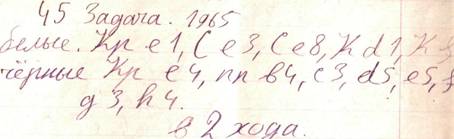 45 Задача. 1965
белые. Кр e1, С e3, С e8, К d1, К
чёрные Кр e4, пп b4, c3, d5, e5,
g3, h4.
в 2 хода.